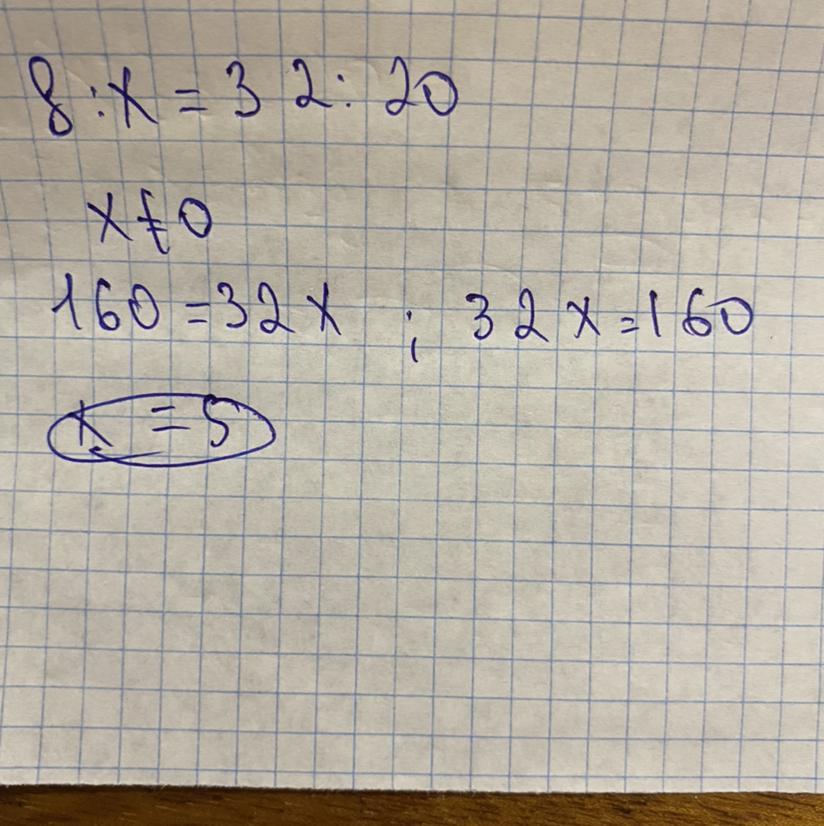 8 : x = 32 : 20
x ≠ 0
160 = 32x ; 32x = 160
x = 5